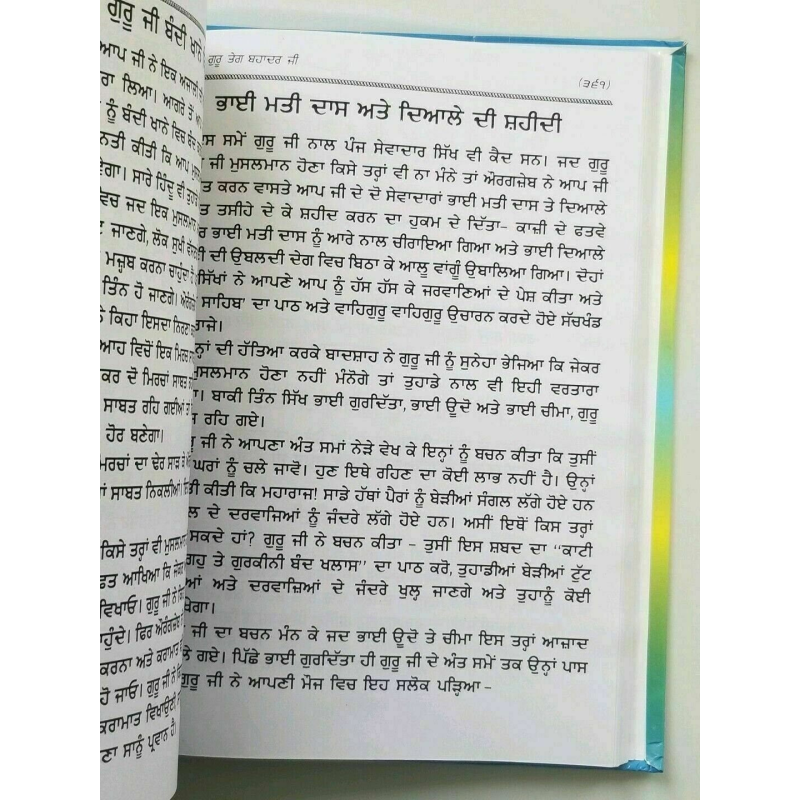 ਗੁਰੂ ਜੀ ਬੰਦੀ ਖਾਨੇ
ਆਪ ਜੀ ਨੇ ਇਕ
ਰਾ ਲਿਆ। ਆਗਰੇ ਤੋਂ
ਨੂੰ ਬੰਦੀ ਖਾਨੇ ਵਿਚ ਬੰਦ
ਨਤੀ ਕੀਤੀ ਕਿ ਆਪ
ਏਗਾ। ਸਾਰੇ ਹਿੰਦੂ ਵੀ ਤੁਹਾਡੇ
ਵਿਚ ਜਦ ਇਕ ਮੁਸਲਮਾਨ
ਜਾਣਗੇ, ਲੋਕ ਸੁਖੀ
ਮਜ਼੍ਹਬ ਕਰਨਾ ਚਾਹੁੰਦਾ ਹੈ
ਤਿੰਨ ਹੋ ਜਾਣਗੇ।
ਨੇ ਕਿਹਾ ਇਸਦਾ ਨਿਰਣਾ
ਆਹ ਵਿਚੋਂ ਇਕ ਮਿਰਚ
ਕਰ ਦੋ ਮਿਰਚਾਂ ਸਾਬਤ
ਸਾਬਤ ਰਹਿ ਗਈਆਂ ਤਾਂ
ਹੋਰ ਬਣੇਗਾ।
ਮਿਰਚਾਂ ਦਾ ਢੇਰ ਸਾੜ ਤੇ
ਸਾਬਤ ਨਿਕਲੀਆਂ।
ਕਿਸੇ ਤਰ੍ਹਾਂ ਵੀ
ਆਖਿਆ ਕਿ ਜੇਕਰ
ਵਿਖਾਓ। ਗੁਰੂ ਜੀ ਨੇ
ਚਾਹੁੰਦੇ। ਫਿਰ ਔਰੰਗਜ਼ੇਬ
ਕਰਨਾ ਅਤੇ ਕਰਾਮਾਤ
ਹੋ ਜਾਓ। ਗੁਰੂ ਜੀ ਨੇ
ਕਰਾਮਾਤ ਵਿਖਾਉਣੀ
ਣਾ ਸਾਨੂੰ ਪ੍ਰਵਾਨ ਹੈ।
ਗੁਰੂ ਤੇਗ ਬਹਾਦਰ ਜੀ (੩੬੧)
ਭਾਈ ਮਤੀ ਦਾਸ ਅਤੇ ਦਿਆਲੇ ਦੀ ਸ਼ਹੀਦੀ
ਸ ਸਮੇਂ ਗੁਰੂ ਜੀ ਨਾਲ ਪੰਜ ਸੇਵਾਦਾਰ ਸਿੱਖ ਵੀ ਕੈਦ ਸਨ। ਜਦ ਗੁਰੂ
ਜੀ ਮੁਸਲਮਾਨ ਹੋਣਾ ਕਿਸੇ ਤਰ੍ਹਾਂ ਵੀ ਨਾ ਮੰਨੇ ਤਾਂ ਔਰਗਜ਼ੇਬ ਨੇ ਆਪ ਜੀ
ਤ ਕਰਨ ਵਾਸਤੇ ਆਪ ਜੀ ਦੇ ਦੋ ਸੇਵਾਦਾਰਾਂ ਭਾਈ ਮਤੀ ਦਾਸ ਤੇ ਦਿਆਲੇ
ਤ ਤਸੀਹੇ ਦੇ ਕੇ ਸ਼ਹੀਦ ਕਰਨ ਦਾ ਹੁਕਮ ਦੇ ਦਿੱਤਾ- ਕਾਜ਼ੀ ਦੇ ਫਤਵੇ
ਰ ਭਾਈ ਮਤੀ ਦਾਸ ਨੂੰ ਆਰੇ ਨਾਲ ਚੀਰਾਇਆ ਗਿਆ ਅਤੇ ਭਾਈ ਦਿਆਲੇ
ਦੀ ਉਬਲਦੀ ਦੇਗ ਵਿਚ ਬਿਠਾ ਕੇ ਆਲੂ ਵਾਂਗੂੰ ਉਬਾਲਿਆ ਗਿਆ। ਦੋਹਾਂ
ਸਿੱਖਾਂ ਨੇ ਆਪਣੇ ਆਪ ਨੂੰ ਹੱਸ ਹੱਸ ਕੇ ਜਰਵਾਣਿਆਂ ਦੇ ਪੇਸ਼ ਕੀਤਾ ਅਤੇ
ਸਾਹਿਬ' ਦਾ ਪਾਠ ਅਤੇ ਵਾਹਿਗੁਰੂ ਵਾਹਿਗੁਰੂ ਉਚਾਰਨ ਕਰਦੇ ਹੋਏ ਸੱਚਖੰਡ
ਰਾਜੇ।
ਨ੍ਹਾਂ ਦੀ ਹੱਤਿਆ ਕਰਕੇ ਬਾਦਸ਼ਾਹ ਨੇ ਗੁਰੂ ਜੀ ਨੂੰ ਸੁਨੇਹਾ ਭੇਜਿਆ ਕਿ ਜੇਕਰ
ਮੁਸਲਮਾਨ ਹੋਣਾ ਨਹੀਂ ਮੰਨੋਗੇ ਤਾਂ ਤੁਹਾਡੇ ਨਾਲ ਵੀ ਇਹੀ ਵਰਤਾਰਾ
ਾ। ਬਾਕੀ ਤਿੰਨ ਸਿੱਖ ਭਾਈ ਗੁਰਦਿੱਤਾ, ਭਾਈ ਊਦੋ ਅਤੇ ਭਾਈ ਚੀਮਾ, ਗੁਰੂ
ਰਹਿ ਗਏ।
ਜੀ ਨੇ ਆਪਣਾ ਅੰਤ ਸਮਾਂ ਨੇੜੇ ਵੇਖ ਕੇ ਇਨ੍ਹਾਂ ਨੂੰ ਬਚਨ ਕੀਤਾ ਕਿ ਤੁਸੀਂ
ਘਰਾਂ ਨੂੰ ਚਲੇ ਜਾਵੋ। ਹੁਣ ਇਥੇ ਰਹਿਣ ਦਾ ਕੋਈ ਲਾਭ ਨਹੀਂ ਹੈ। ਉਨ੍ਹਾਂ
ਤੀ ਕੀਤੀ ਕਿ ਮਹਾਰਾਜ! ਸਾਡੇ ਹੱਥਾਂ ਪੈਰਾਂ ਨੂੰ ਬੇੜੀਆਂ ਸੰਗਲ ਲੱਗੇ ਹੋਏ ਹਨ
ਲ ਦੇ ਦਰਵਾਜਿਆਂ ਨੂੰ ਜੰਦਰੇ ਲੱਗੇ ਹੋਏ ਹਨ। ਅਸੀਂ ਇਥੋਂ ਕਿਸ ਤਰ੍ਹਾਂ
ਸਕਦੇ ਹਾਂ? ਗੁਰੂ ਜੀ ਨੇ ਬਚਨ ਕੀਤਾ - ਤੁਸੀਂ ਇਸ ਸ਼ਬਦ ਦਾ "ਕਾਟੀ
ਗਹੁ ਤੇ ਗੁਰਕੀਨੀ ਬੰਦ ਖਲਾਸ" ਦਾ ਪਾਠ ਕਰੋ, ਤੁਹਾਡੀਆਂ ਬੇੜੀਆਂ ਟੁੱਟ
ਆਂ ਅਤੇ ਦਰਵਾਜ਼ਿਆਂ ਦੇ ਜੰਦਰੇ ਖੁਲ੍ਹ ਜਾਣਗੇ ਅਤੇ ਤੁਹਾਨੂੰ ਕੋਈ
ਖੇਗਾ।
ਜੀ ਦਾ ਬਚਨ ਮੰਨ ਕੇ ਜਦ ਭਾਈ ਊਦੋ ਤੇ ਚੀਮਾ ਇਸ ਤਰ੍ਹਾਂ ਆਜ਼ਾਦ
ਲੇ ਗਏ। ਪਿੱਛੇ ਭਾਈ ਗੁਰਦਿੱਤਾ ਹੀ ਗੁਰੂ ਜੀ ਦੇ ਅੰਤ ਸਮੇਂ ਤਕ ਉਨ੍ਹਾਂ ਪਾਸ
ਗੁਰੂ ਜੀ ਨੇ ਆਪਣੀ ਮੌਜ ਵਿਚ ਇਹ ਸਲੋਕ ਪੜ੍ਹਿਆ -